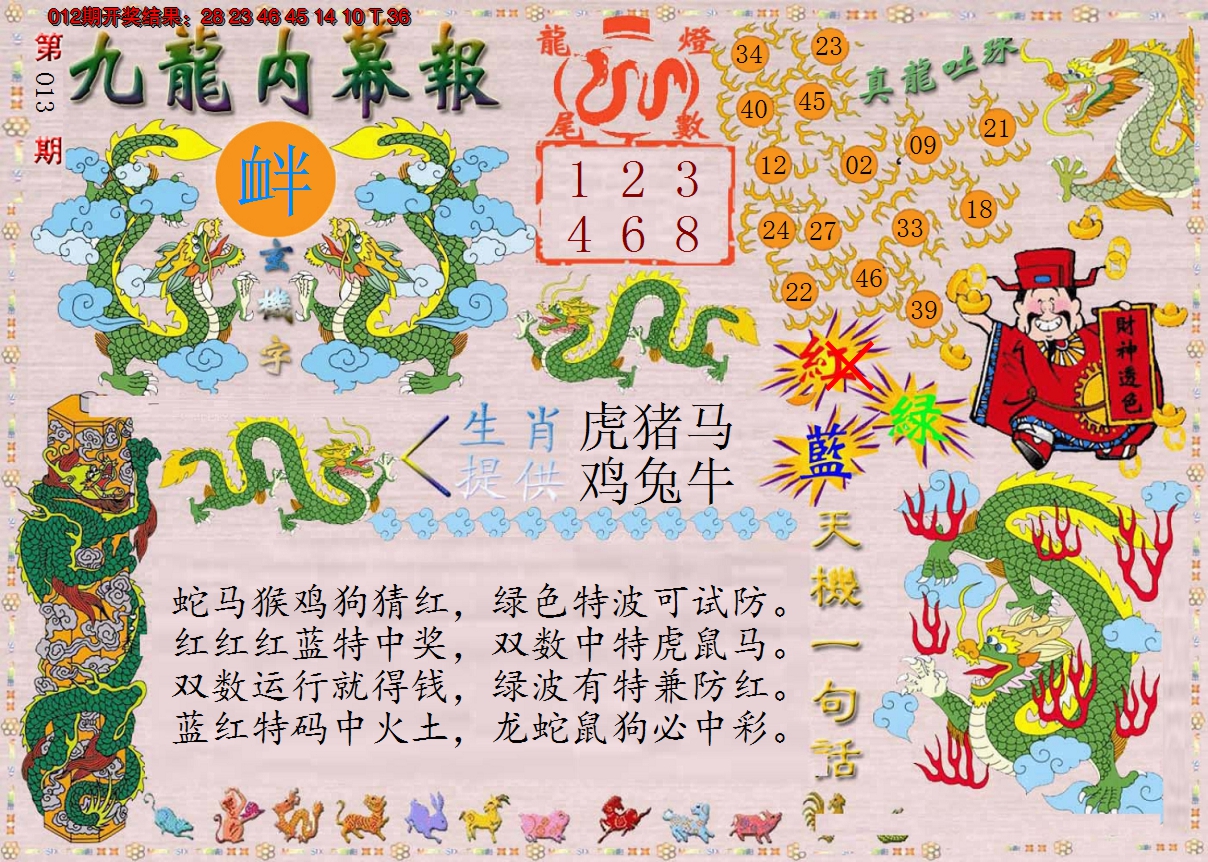 012期开奖结果：28 23 46 45 14 10 T 36
第013期
九龍内幕報
衅
玄機字
龍燈
尾數
1 2 3
4 6 8
真龍吐珠
34
23
40
45
12
02
09
21
24
27
33
18
22
46
39
財神透色
紅
绿
藍
生肖提供
虎猪马
鸡兔牛
天機一句话
蛇马猴鸡狗猜红，绿色特波可试防。
红红红蓝特中奖，双数中特虎鼠马。
双数运行就得钱，绿波有特兼防红。
蓝红特码中火土，龙蛇鼠狗必中彩。